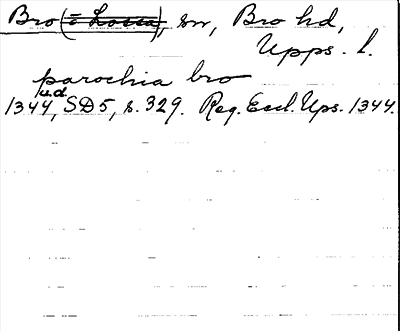 Bro (= Lossa), sn, Bro hd,
Upps. l.
parochia bro
u.d.
1344, SD5, s. 329. Reg. Eccl. Ups. 1344.